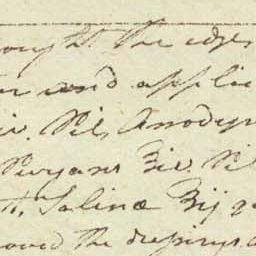 ought the edges
and applic
iv. Pil, Anodyn
Purgans ʒiv. Pil
Salinæ ʒij
oved the dressings